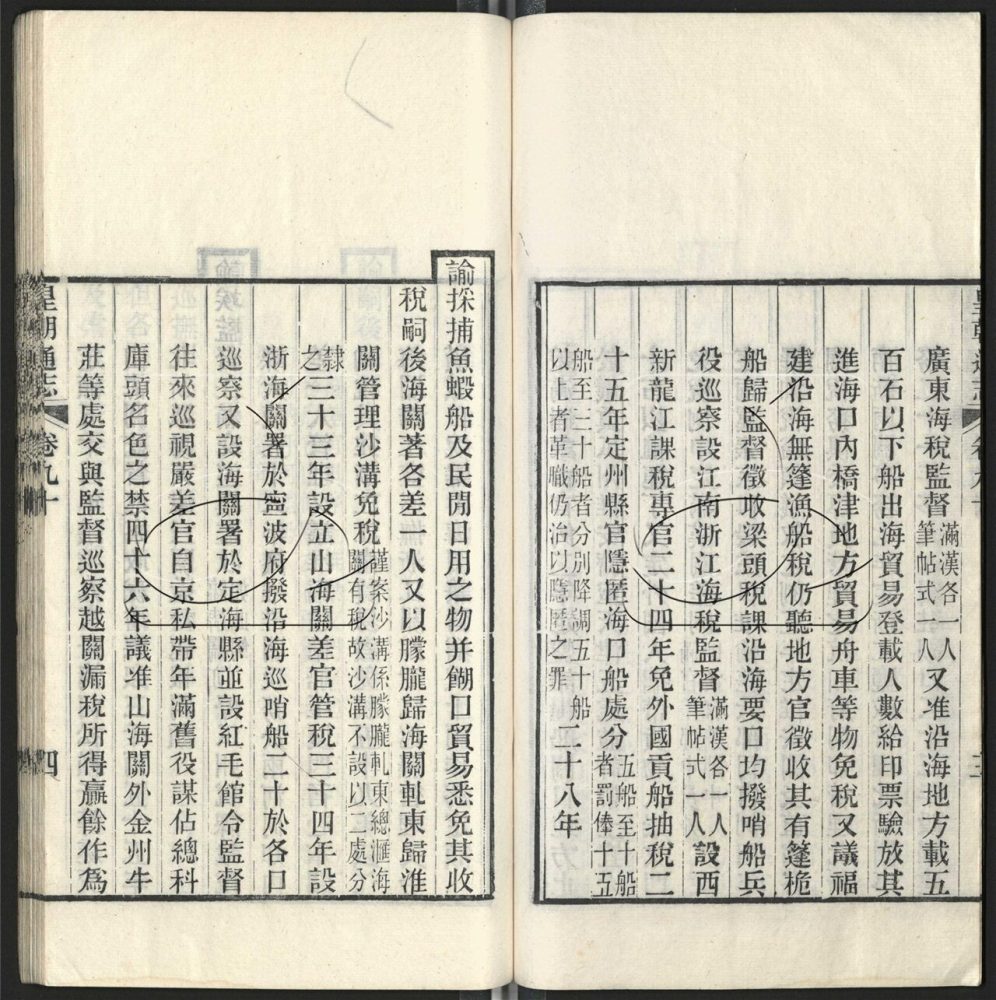 廣東海稅監督滿漢各一人筆帖式一人又准沿海地方載五
百石以下船出海貿易登載人數給印票驗放其
進海口內橋津地方貿易舟車等物免稅又議福
建沿海無篷漁船稅仍聽地方官徵收其有篷桅
船歸監督徵收梁頭稅課沿海要口均撥哨船兵
役巡察設江南浙江海稅監督滿漢各一人筆帖式一人設西
新龍江課稅專官二十四年免外國貢船抽稅二
十五年定州縣官隱匿海口船處分五船至十船者罰俸十五
船至三十船者分別降調五十船以上者革職仍治以隱匿之罪二十八年
諭採捕魚蝦船及民閒日用之物并餬口貿易悉免其收
稅嗣後海關著各差一人又以朦朧歸海關軋東歸淮
關管理沙溝免稅謹案沙溝係朦朧軋東總滙海關有稅故沙溝不設以二處分
隸之三十三年設立山海關差官管稅三十四年設
浙海關署於寧波府撥沿海巡哨船二十於各口
巡察又設海關署於定海縣並設紅毛館令監督
往來巡視嚴差官自京私帶年滿舊役謀佔總科
庫頭名色之禁四十六年議准山海關外金州牛
莊等處交與監督巡察越關漏稅所得贏餘作爲
皇朝通志 卷九十 四